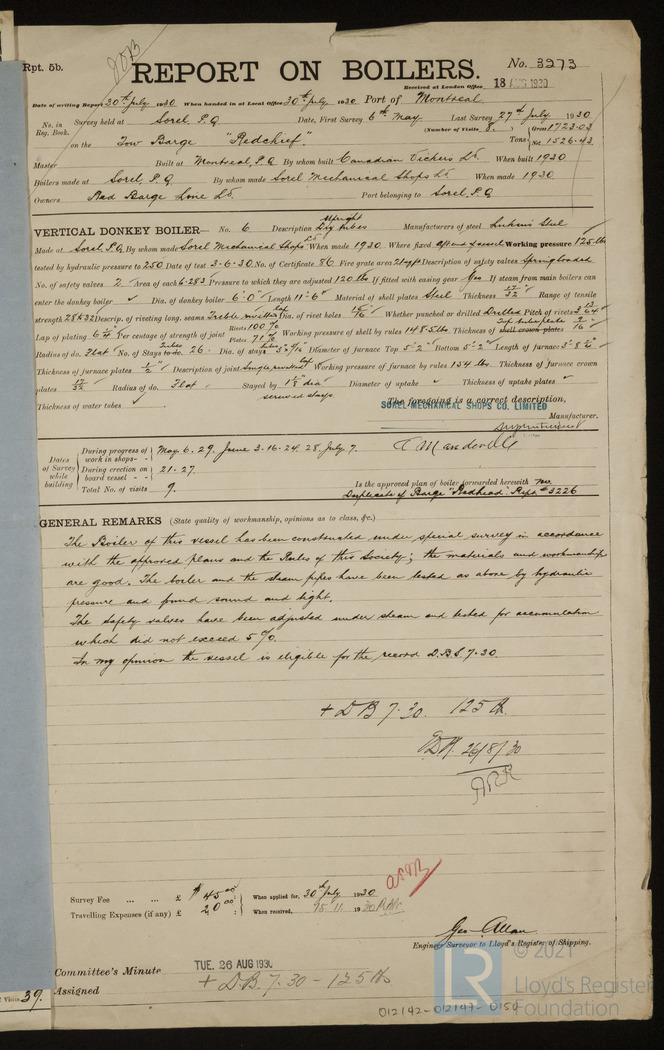 Rpt. 5b.
REPORT ON BOILERS.
No. 3273
Received at London Office 18 AUG 1930
Date of writing Report 30th July 1930 When handed in at Local Office 30th July 1930 Port of Montreal
No. in Reg. Book. Survey held at Sorel, P.Q. Date, First Survey 6th May Last Survey 27th July 1930
(Number of Visits 8.)
on the Tow Barge "Redchief". Tons { Gross 1723.03 Net 1526.43
Master Built at Montreal, P.Q By whom built Canadian Vickers Ld. When built 1930
Boilers made at Sorel, P.Q By whom made Sorel Mechanical Shops Ld When made 1930
Owners Red Barge Line Ld. Port belonging to Sorel, P.Q
VERTICAL DONKEY BOILER— No. 6 Description Upright Dry tubes Manufacturers of steel Lukens Steel
Made at Sorel P.Q By whom made Sorel Mechanical Shops Ld When made 1930 Where fixed Aft end of vessel Working pressure 125 lbs
tested by hydraulic pressure to 250 Date of test 3-6-30 No. of Certificate 86 Fire grate area 21 sq ft Description of safety valves Spring loaded
No. of safety valves 2 Area of each 6.283 Pressure to which they are adjusted 120 lbs If fitted with easing gear Yes If steam from main boilers can
enter the donkey boiler ✓ Dia. of donkey boiler 6'-0" Length 11'-6" Material of shell plates Steel Thickness 17/32" Range of tensile
strength 28 & 32 Descrip. of riveting long. seams Treble rivetted lap Dia. of rivet holes 15/16 Whether punched or drilled Drilled Pitch of rivets
Lap of plating 6 1/4" Per centage of strength of joint Rivets 100% Plates 71% Working pressure of shell by rules 148.5 lbs Thickness of shell crown plates
Radius of do. Flat No. of Stays to do. Tubes 26. Dia. of stays Diameter of furnace Top 5'-2" Bottom 5'-2" Length of furnace
Thickness of furnace plates 1/2" Description of joint Single rivetted lap Working pressure of furnace by rules 154 lbs. Thickness of furnace crown
plates 17/32 Radius of do. Flat Stayed by 1 1/8" dia screwed stays Diameter of uptake ✓ Thickness of uptake plates ✓
Thickness of water tubes ✓ The foregoing is a correct description,
SOREL MECHANICAL SHOPS CO. LIMITED
Manufacturer.
Superintendent
Dates of Survey while building
During progress of work in shops - - May. 6. 29. June 3. 16. 24. 28. July. 7.
During erection on board vessel - - 21. 27.
Total No. of visits 9.
Is the approved plan of boiler forwarded herewith No
Duplicate of Barge "Redhead" Rept. # 3226
GENERAL REMARKS (State quality of workmanship, opinions as to class, &c.)
The Boiler of this vessel has been constructed under special survey in accordance
with the approved plans and the Rules of this Society; the materials and workmanship
are good. The boiler and the steam pipes have been tested as above by hydraulic
pressure and found sound and tight.
The safety valves have been adjusted under steam and tested for accumulation
which did not exceed 5%.
In my opinion the vessel is eligible for the record D.B.S. 7-30.
+ DB 7.30. 125 lb.
26/8/30
Survey Fee ... ... £ $ 45.00 When applied for, 30th July 1930
Travelling Expenses (if any) £ 20.00 When received, 1930
Geo. Allan
Engineer Surveyor to Lloyd's Register of Shipping.
Committee's Minute TUE. 26 AUG 1930
Assigned + D.B. 7.30 - 125 lb
39.
© 2021
LR
Lloyd's Register
Foundation
012142-012147-0150